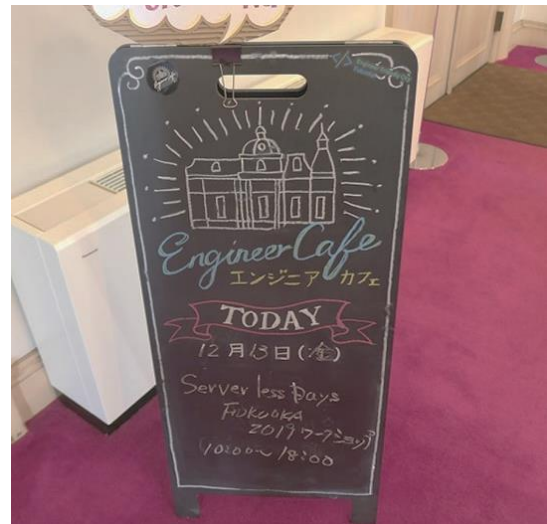 Engineer Cafe
エンジニア カフェ
TODAY
12月13日(金)
Server less Days
FUKUOKA
2019ワークショップ
10:00～18:00